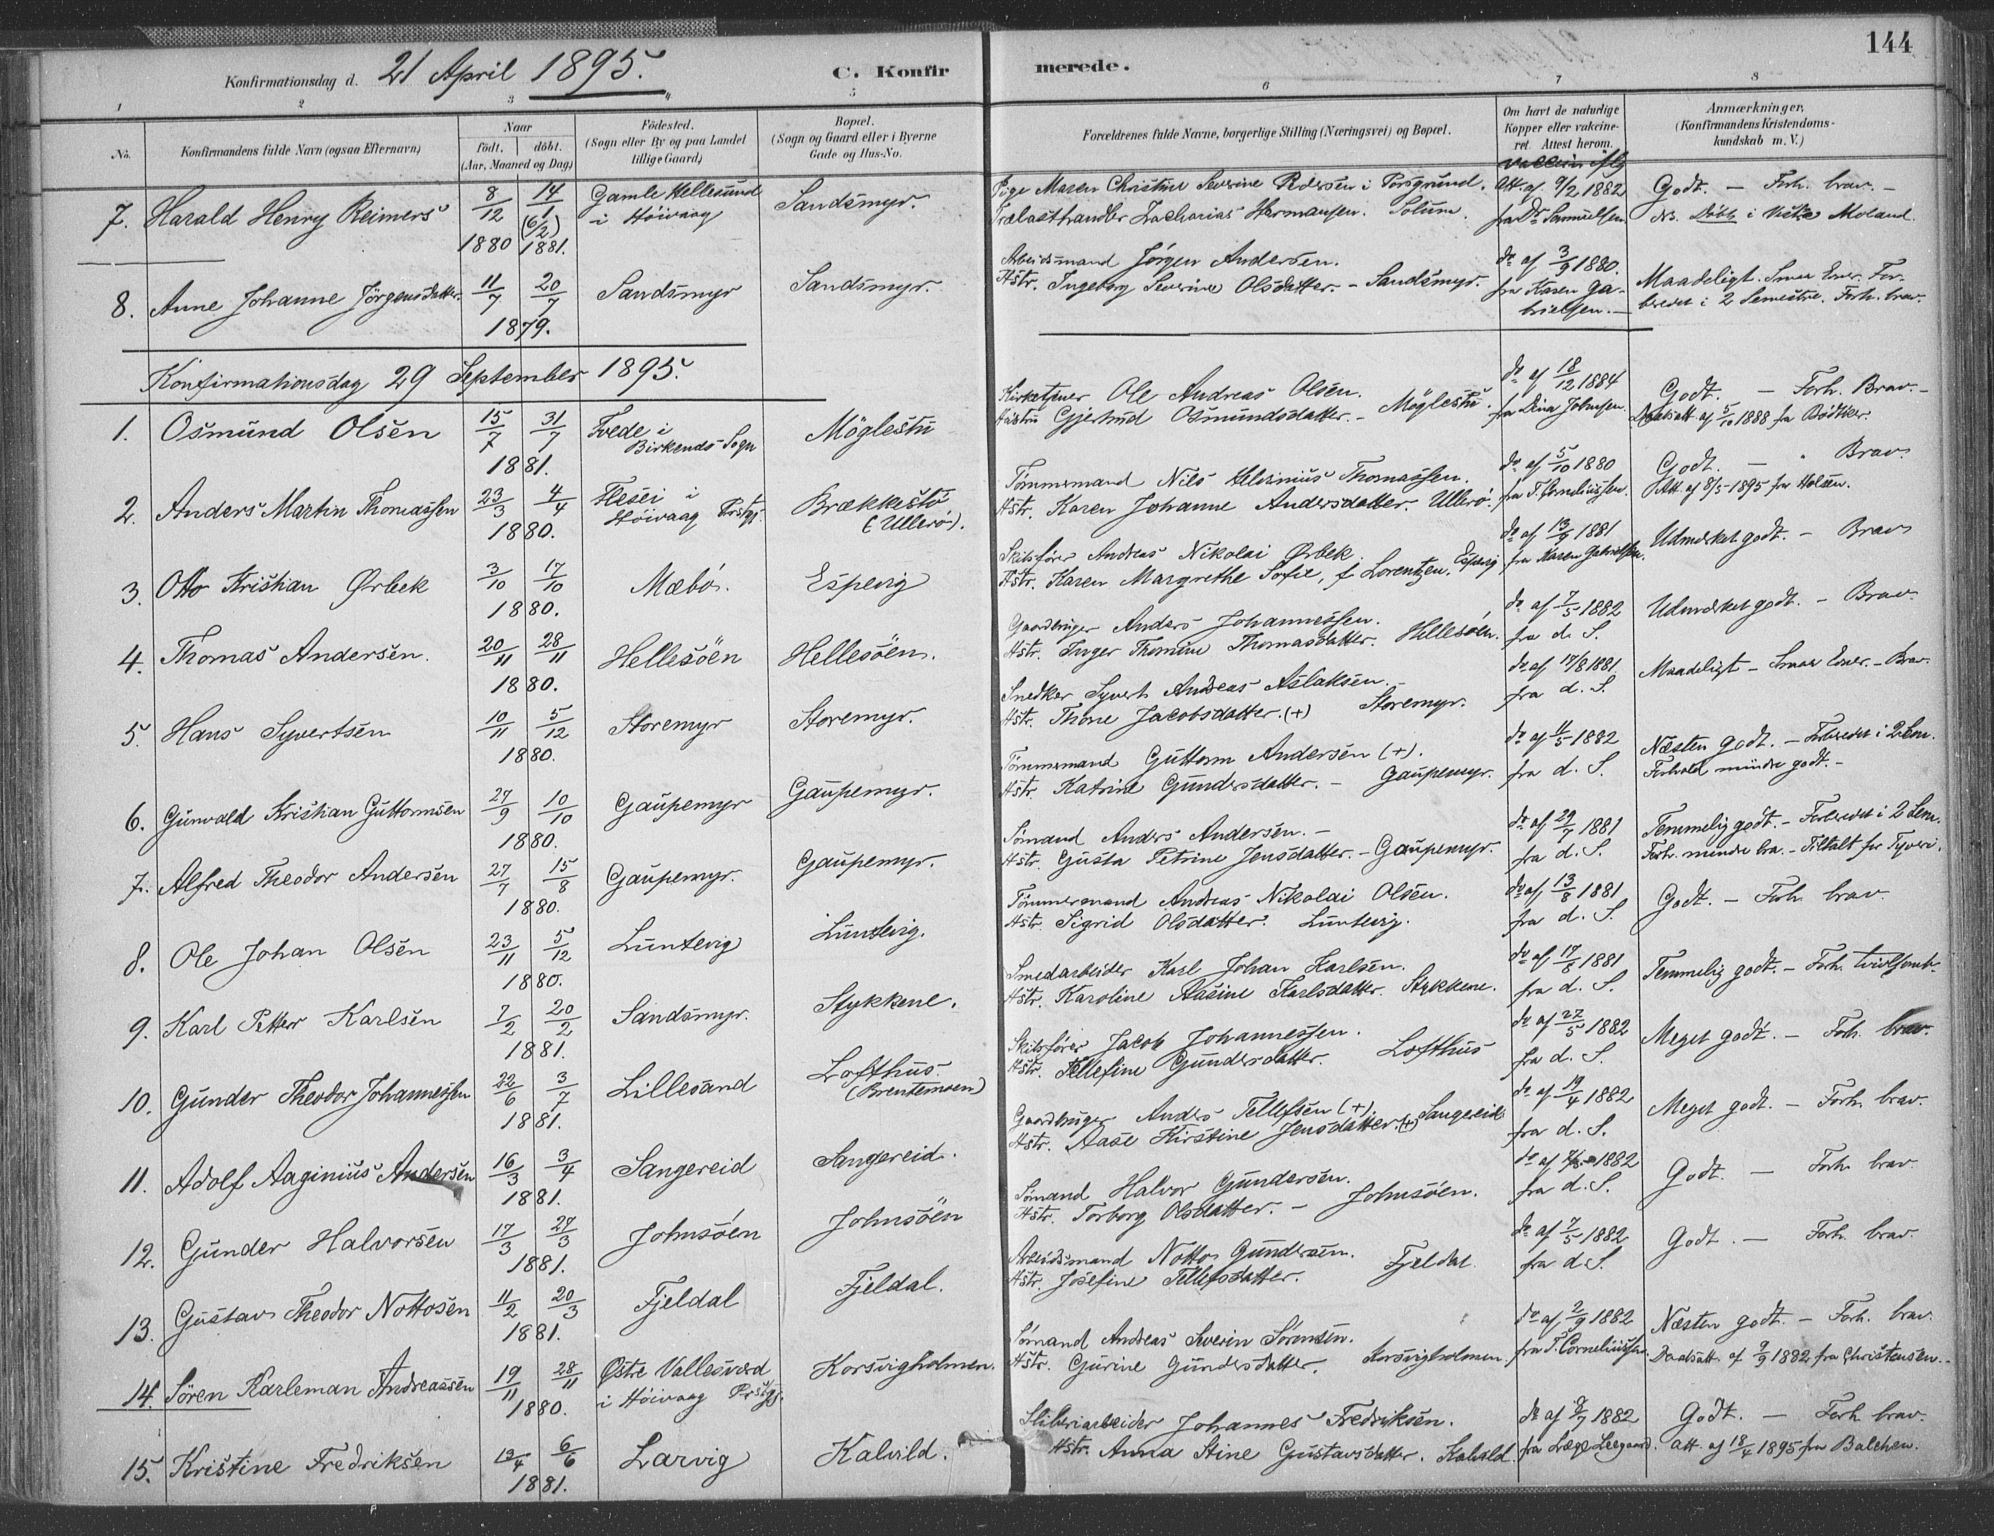 144
Konfirmationsdag d. 21 April 1895.
C. Konfirmerede.
1 2 3 4 5 6 7 8
No.
Konfirmandens fulde Navn (ogsaa Efternavn)
Naar
födt. döbt.
(Aar, Maaned og Dag)
Födested.
(Sogn eller By og paa Landet
tillige Gaard)
Bopæl.
(Sogn og Gaard eller i Byerne
Gade og Hus-No.
Forældrenes fulde Navne, borgerlige Stilling (Næringsvei) og Bopæl.
Om havt de naturlige
Kopper eller vakcineret.
Attest herom.
Anmærkninger.
(Konfirmandens Kristendomskundskab
m. V.)
7. Harald Henry Reimers 8/12 1880 14/1 (6/2) 1881. Gamle Hellesund
i Höivaag Sandsmyr.
Pige Maren Christine Severine Pedersen i Porsgrund.
Trælasthandler Zacharias Hermansen. Solum.
Att. af 9/2 1882
fra Dr Samuelsen
Godt. – Forh. brav. –
NB. Döbt i Moland.
8. Anne Johanne Jörgensdatter 11/7 20/7 1879. Sandsmyr Sandsmyr.
Arbeidsmand Jörgen Andersen.
Hstr. Ingeborg Severine Olsdatter. – Sandsmyr.
do af 3/9 1880.
fra Karen Gabrielsen. –
Maadeligt. Smaa Evner. Forberedet
i 2 Semestre. Forh. brav.
Konfirmationsdag 29 September 1895.
1. Osmund Olsen 15/7 31/7 1881. Tvede i
Birkenes Sogn Möglestu
Kirketjener Ole Andreas Olsen.
Hustru Gjertrud Osmundsdatter. – Möglestu.
do af 18/12 1884
fra Dina Johnsen.
Godt. – Forh. Brav. –
Daabsatt. af 5/10 1888 fra Bödtker.
2. Anders Martin Thomassen 23/3 4/4 1880. Flesei i
Höivaag Prstgj. Brækkestö
(Ulleröi).
Tömmermand Nils Thomassen.
Hstr. Karen Johanne Andersdatter. Ullerö.
do af 5/10 1880
fra T. Corneliussen.
Godt. – Brav.
Att. af 8/5 1895 fra Holsen.
3. Otto Kristian Ørbek 3/10 17/10 1880. Mæbö. Espevig
Skibsförer Andreas Nikolai Ørbek.
Hstr. Karen Margrethe Sofie, f. Lorentzen. Espevig
do af 13/9 1881
fra Karen Gabrielsen.
Udmærket godt. – Brav
4. Thomas Andersen. 20/11 28/11 1880. Hellesöen Hellesöen.
Gaardbruger Anders Johannessen.
Hstr. Inger Thomine Thomasdatter. Hellesöen.
do af 7/5 1882
fra d. S.
Udmærket godt. – Brav.
5. Hans Syvertsen 10/11 5/12 1880. Storemyr Storemyr.
Snedker Syvert Andreas Aslaksen. –
Hstr. Thone Jacobsdatter. (+) Storemyr.
do af 17/8 1881
fra d. S.
Maadeligt – Smaa Evner. – Brav.
6. Gunvald Kristian Guttormsen 27/9 10/10 1880. Gaupemyr Gaupemyr.
Tömmermand Guttorm Andersen (+).
Hstr. Katrine Gundersdatter. – Gaupemyr.
1882
fra d. S.
Næsten godt. – Forberedet i 2 Sem.
Forhold mindre godt. –
7. Alfred Theodor Andersen 27/7 15/8 1880. Gaupemyr. Gaupemyr.
Sömand Anders Andersen. –
Hstr. Gusta Petrine Jensdatter. – Gaupemyr.
do af 29/7 1881
fra d. S.
Temmelig godt. – Forberedet i 2 Sem.
Forh. mindre bra. – Tiltalt for Tyveri.
8. Ole Johan Olsen 23/11 5/12 1880. Luntevig Luntevig.
Tömmermand Andreas Nikolai Olsen.
Hstr. Sigrid Olsdatter. Luntevig.
do af 13/8 1881
fra d. S.
Godt. – Forh. brav.
9. Karl Petter Karlsen 7/2 20/2 1881. Sandsmyr. Stykkene.
Smedarbeider Karl Johan Karlsen.
Hstr. Karoline Aasine Karlsdatter. Stykkene.
do af 17/8 1881
fra d. S.
Temmelig godt. – Forh. tvivlsomt.
10. Gunder Theodor Johannessen 22/6 3/7 1881. Lillesand Lofthus.
Skibsförer Jacob Johannessen.
Hstr. Tellefine Gundersdatter. Lofthus
do af 27/5 1882
fra d. S.
Meget godt. – Forh. brav.
11. Adolf Aaginius Andersen 16/3 3/4 1881. Sangereid Sangereid.
Gaardbruger Anders Tellefsen (+)
Hstr. Aase Kirstine Jensdatter. (+) Sangereid
do af 19/4 1882
fra d. S.
Meget godt. – Forh. brav.
12. Gunder Halvorsen 17/3 27/3 1881. Johnsöen Johnsöen
Sömand Halvor Gundersen.
Hstr. Torborg Olsdatter. – Johnsöen.
1882
fra d. S.
Godt. – Forh. brav.
13. Gustav Theodor Nottosen 11/2 20/3 1881. Fjeldal Fjeldal.
Arbeidsmand Notto Gundersen.
Hstr. Josefine Tellefsdatter. Fjeldal
do af 7/5 1882
fra d. S.
Godt. – Forh. brav.
14. Sören Karleman Andreassen 19/11 28/11 1880. Østre Vallesværd
i Höivaag Prstgj. Korsvigholmen.
Sömand Andreas Severin Sörensen.
Hstr. Gurine Gundersdatter. Korsvigholmen
do af 2/9 1882
fra T. Corneliussen
Næsten godt. – Forh. brav.
Daabsatt. af 9/9 1882 fra Christensen. –
15. Kristine Fredriksen 13/4 6/6 1881. Larvig Kalvild.
Sliberiarbeider Johannes Fredriksen.
Hstr. Anna Stine Gustavsdatter. Kalvild.
1882
fra Læge Leegaard.
Godt. – Forh. brav.
Att. af 18/4 1895 fra Balchen.